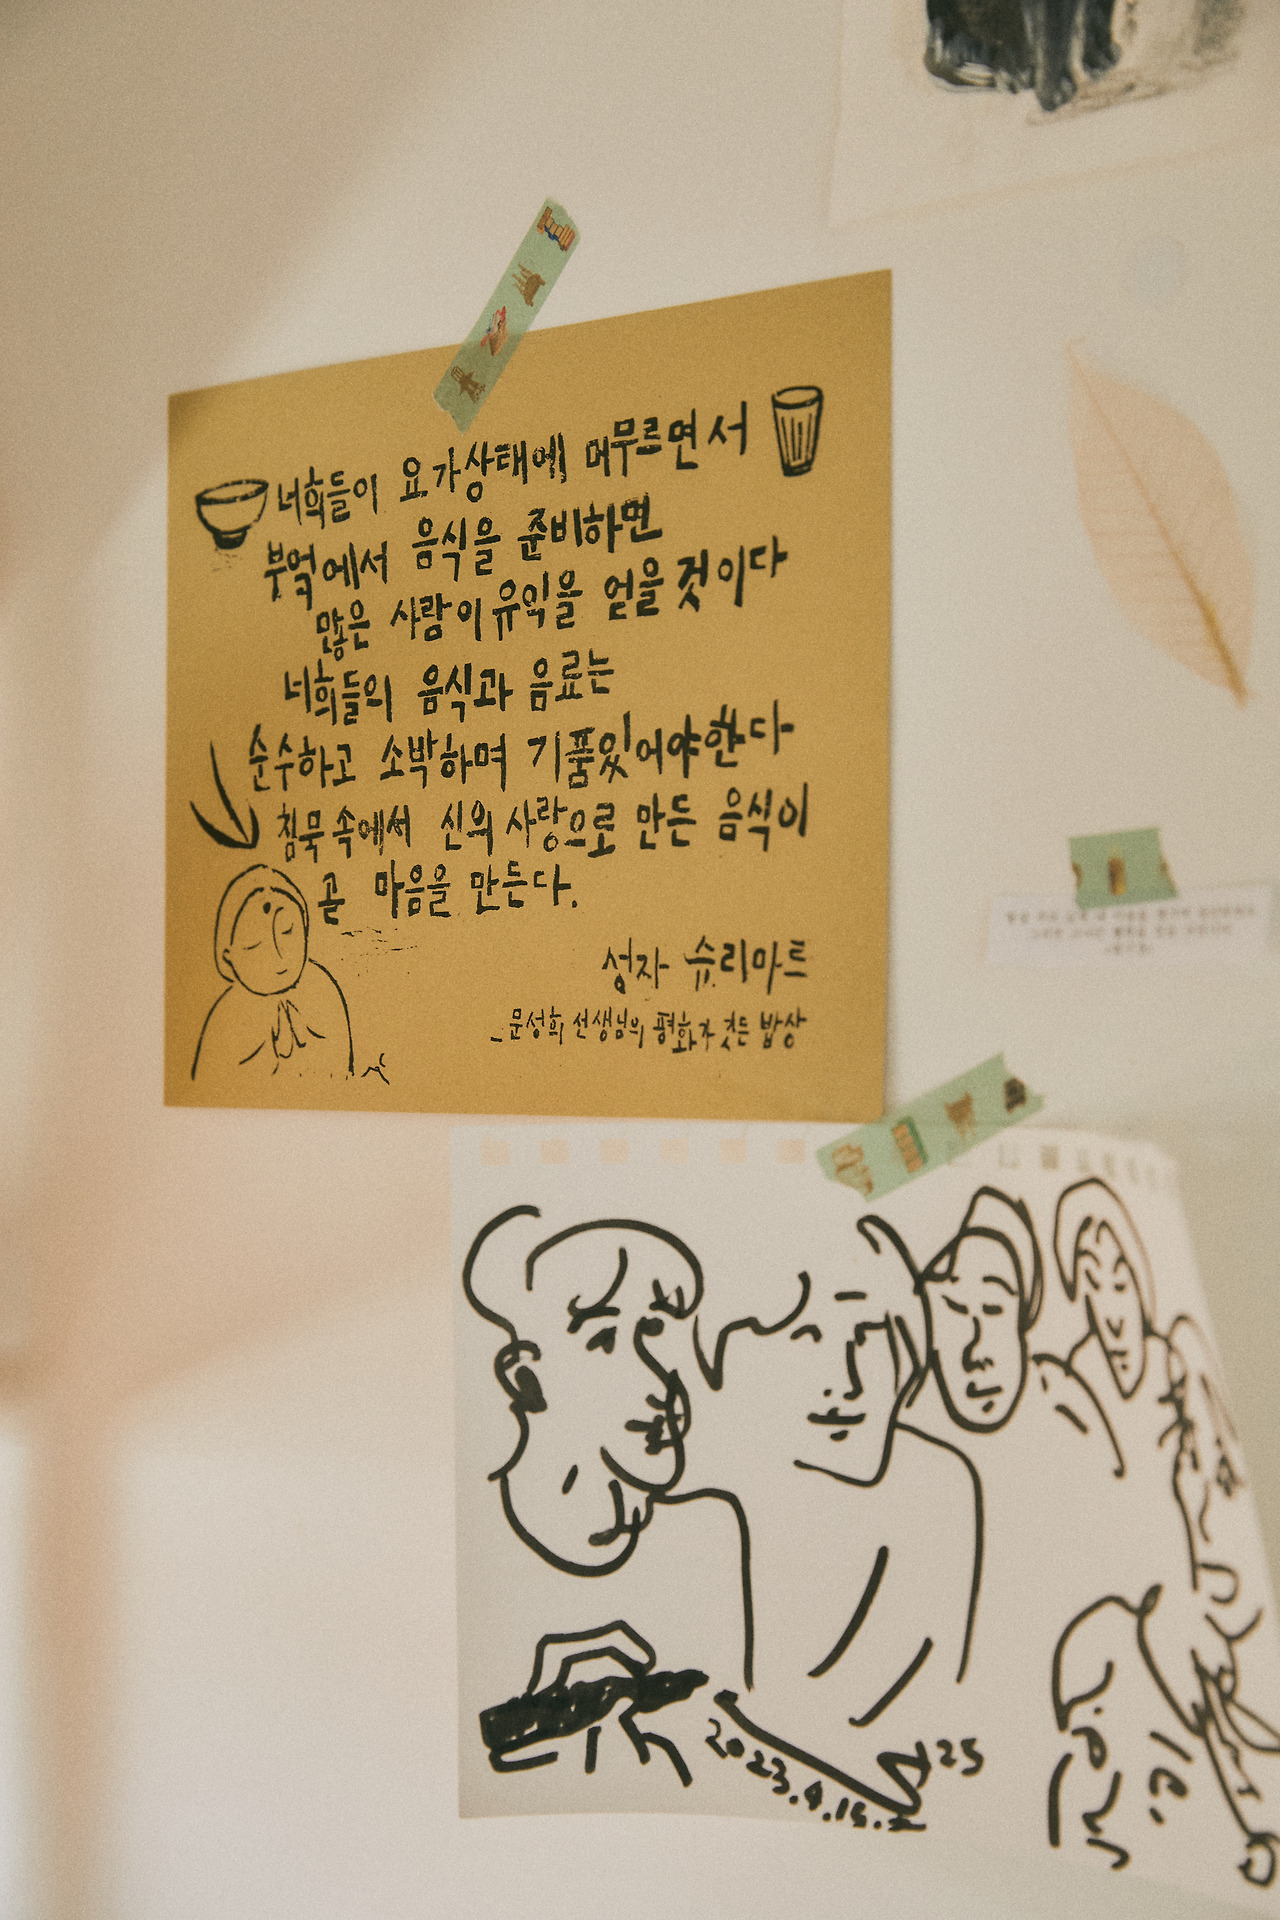 너희들이 요가상태에 머무르면서
부엌에서 음식을 준비하면
많은 사람이 유익을 얻을 것이다
너희들의 음식과 음료는
순수하고 소박하며 기품있어야한다
침묵 속에서 신의 사랑으로 만든 음식이
곧 마음을 만든다.
성자 슈리마트
_문성희 선생님의 평화가 깃든 밥상
2023.4.15.